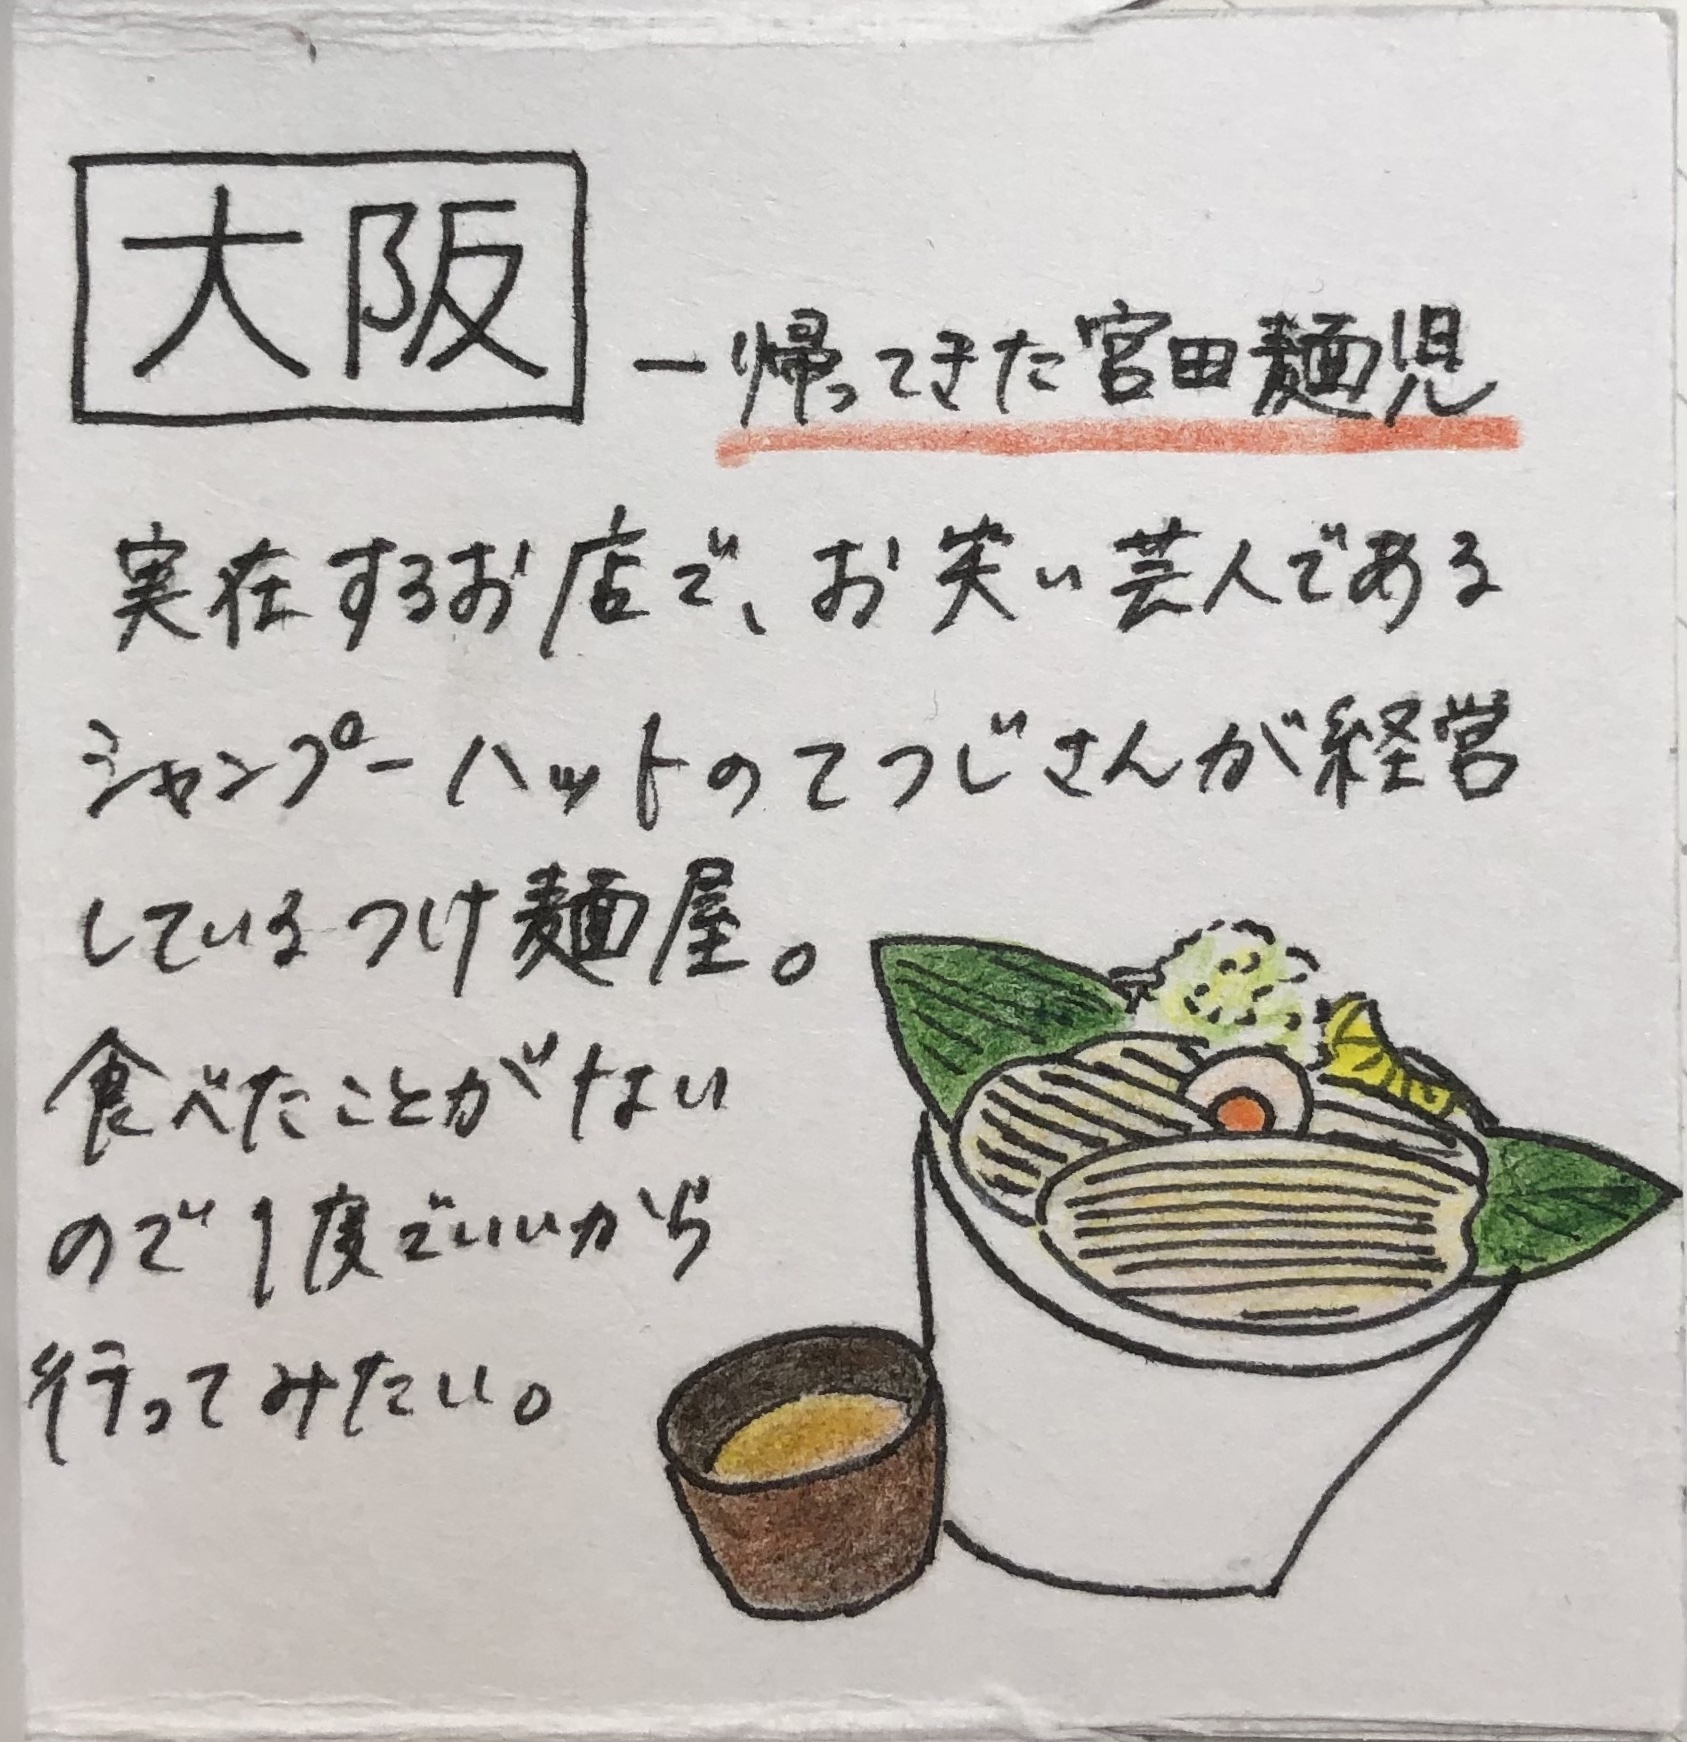 大阪
ー帰ってきた宮田麺児
実在するお店で、お笑い芸人である
シャンプーハットのてつじさんが経営
しているつけ麺屋。
食べたことがない
ので1度でいいから
行ってみたい。